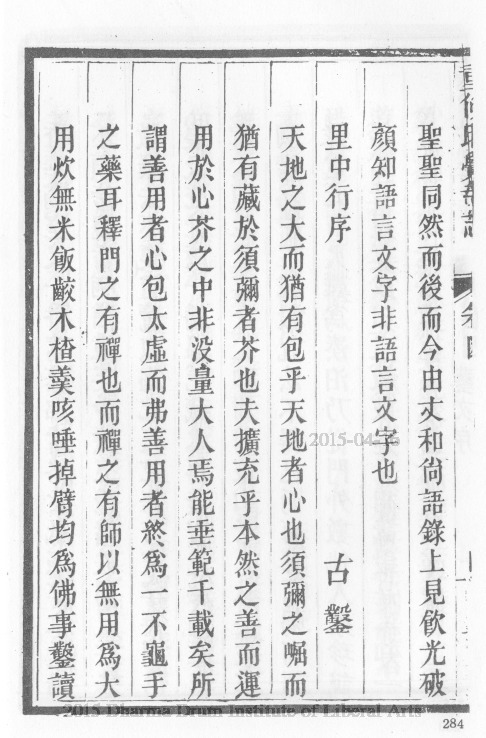 聖聖同然而後而今由丈和尙語錄上見飮光破
顏知語言文字非語言文字也
里中行序 古鑿
天地之大而猶有包乎天地者心也須彌之崛而
猶有藏於須彌者芥也夫擴充乎本然之善而運
用於心芥之中非没量大人焉能垂範千載矣所
謂善用者心包太虛而弗善用者終爲一不龜手
之藥耳釋門之有禪也而禪之有師以無用爲大
用炊無米飯齩木楂羹咳唾掉臂均爲佛事鑿讀
2015-04-
2015 Dharma Drum Institute of Liberal Arts
284